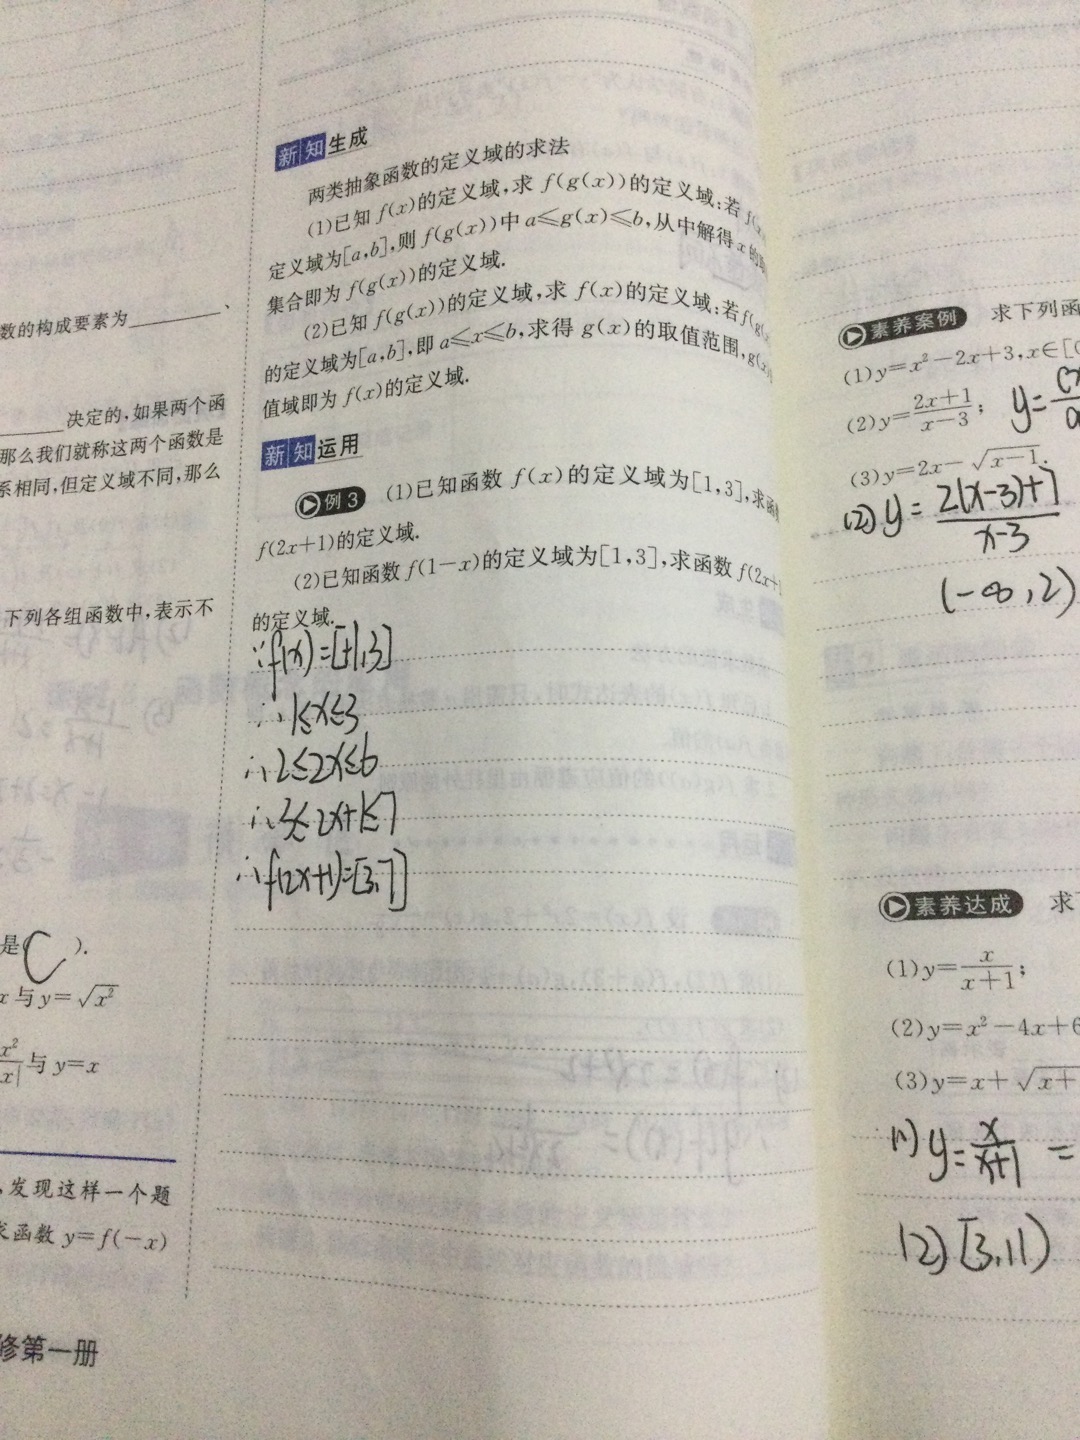 数的构成要素为________、
________决定的,如果两个函
那么我们就称这两个函数是
系相同,但定义域不同,那么
下列各组函数中,表示不
是(C).
x与y=√x²
x²/|x|与y=x
发现这样一个题
求函数 y=f(-x)
修第一册
新知生成
两类抽象函数的定义域的求法
(1)已知f(x)的定义域,求f(g(x))的定义域:若f(x)
定义域为[a,b],则f(g(x))中a≤g(x)≤b,从中解得x的取
集合即为f(g(x))的定义域.
(2)已知f(g(x))的定义域,求f(x)的定义域:若f(g(x
的定义域为[a,b],即a≤x≤b,求得g(x)的取值范围,g(x)
值域即为f(x)的定义域.
新知运用
例3 (1)已知函数f(x)的定义域为[1,3],求函数
f(2x+1)的定义域.
(2)已知函数f(1-x)的定义域为[1,3],求函数f(2x+1
的定义域.
∵f(x)=[1,3]
∴1≤x≤3
∴2≤2x≤6
∴3≤2x+1≤7
∴f(2x+1)=[3,7]
素养案例 求下列函
(1)y=x²-2x+3,x∈[0
(2)y=(2x+1)/(x-3); y=
(3)y=2x-√(x-1).
(2)y=(2(x-3)+7)/(x-3)
(-∞,2)
素养达成 求下
(1)y=x/(x+1);
(2)y=x²-4x+6
(3)y=x+√(x+
(1)y=x/(x+1)=
(2)[3,11)